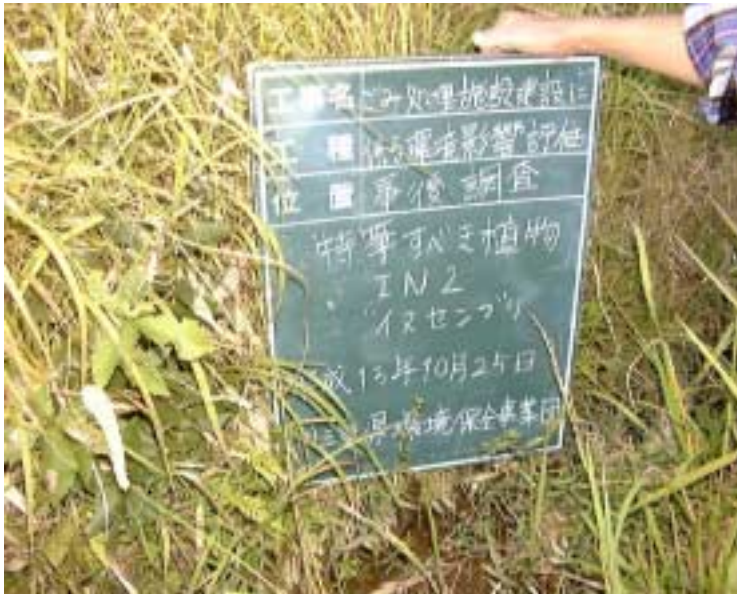 工事名 ごみ処理施設建設に
工種 伴う環境影響評価
位置 事後調査
特筆すべき植物
IN2
イヌセンブリ
成13年10月25日
県環境保全事業団